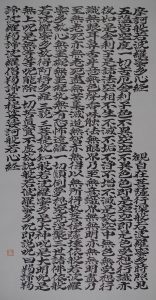 摩訶般若波羅蜜多心經 觀自在菩薩行深般若波羅蜜多時照見
五蘊皆空度一切苦厄舍利子色不異空空不異色色即是空空即是色受想行識亦
復如是舍利子是諸法空相不生不滅不垢不淨不增不減是故空中無色無受想行
識無眼耳鼻舌身意無色聲香味觸法無眼界乃至無意識界無無明亦無無明盡乃
至無老死亦無老死盡無苦集滅道無智亦無得以無所得故菩提薩埵依般若波羅
蜜多故心無罣礙無罣礙故無有恐怖遠離一切顛倒夢想究竟涅槃三世諸佛依般
若波羅蜜多故得阿耨多羅三藐三菩提故知般若波羅蜜多是大神咒是大明咒是
無上咒是無等等咒能除一切苦真實不虛故說般若波羅蜜多咒即說咒曰揭諦揭
諦波羅揭諦波羅僧揭諦菩提薩婆訶般若心經